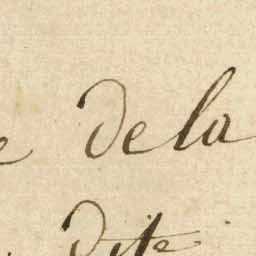 e de la
dite